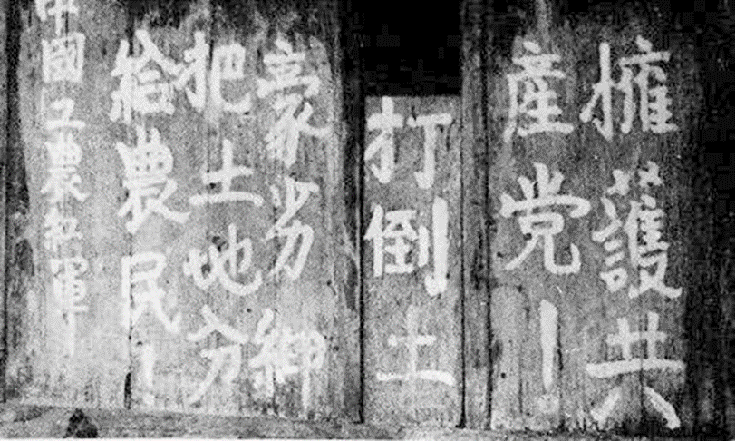 擁護共
産党！
打倒土
豪劣紳
把土地分
给農民！
中國工農红軍！